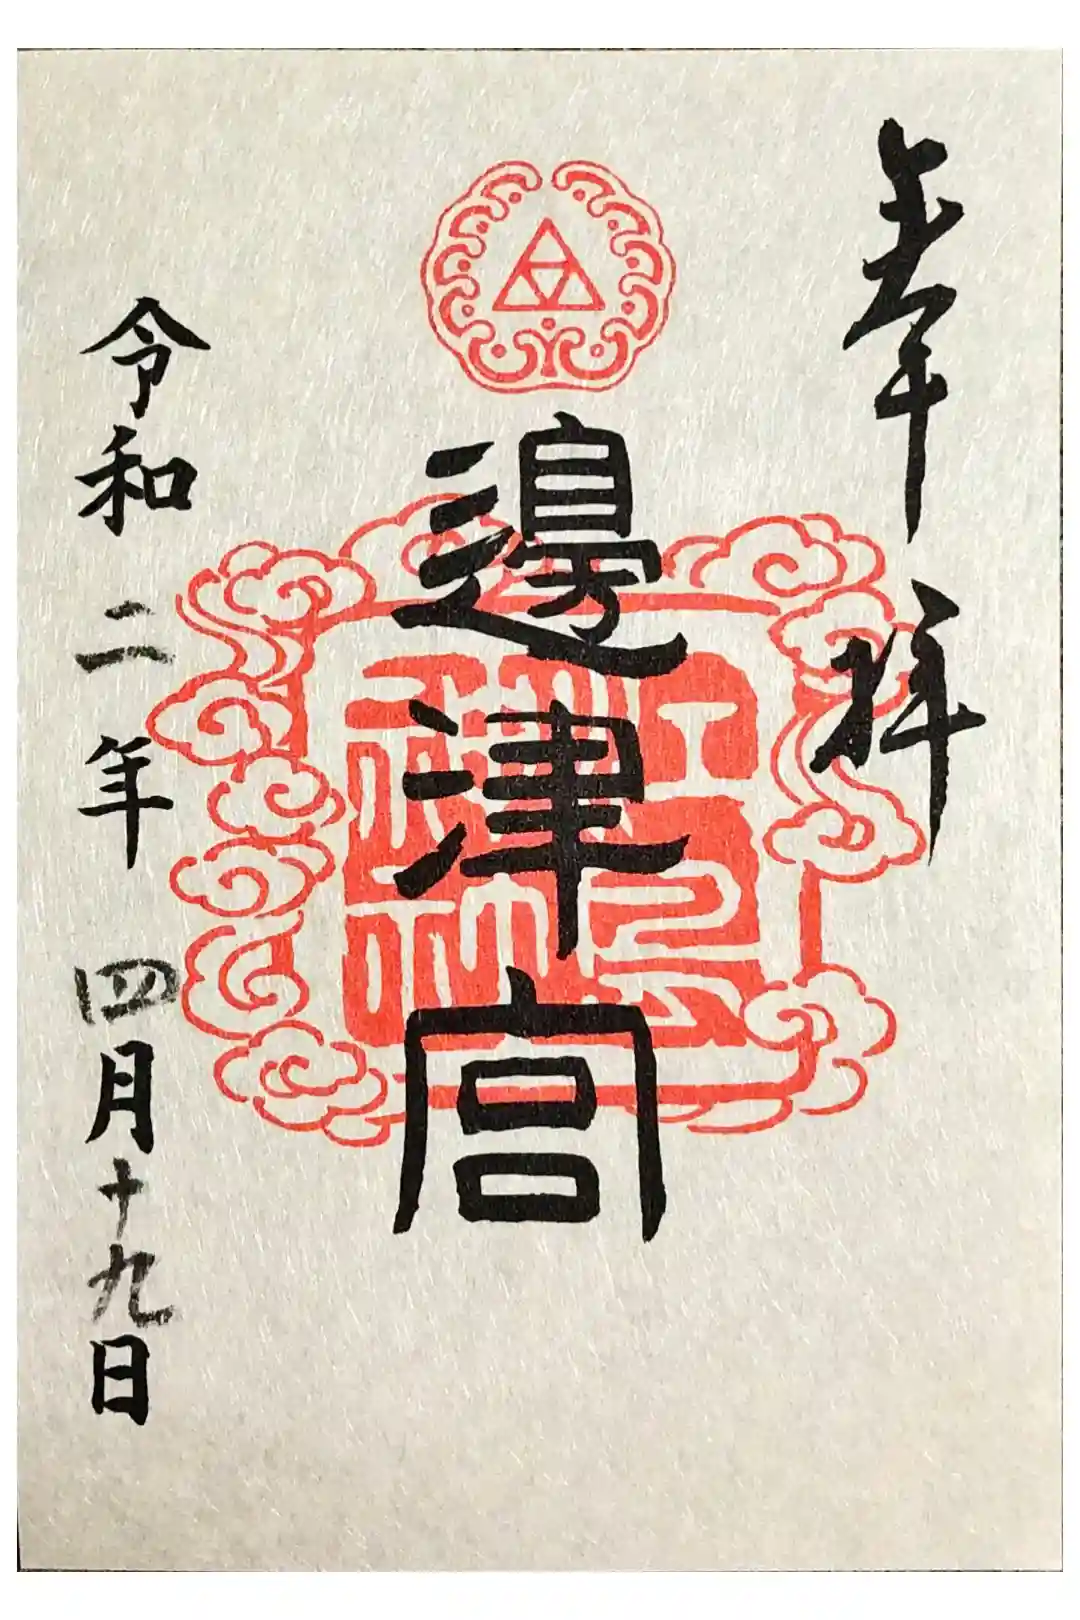 奉拝
邊津宮
令和二年四月十九日